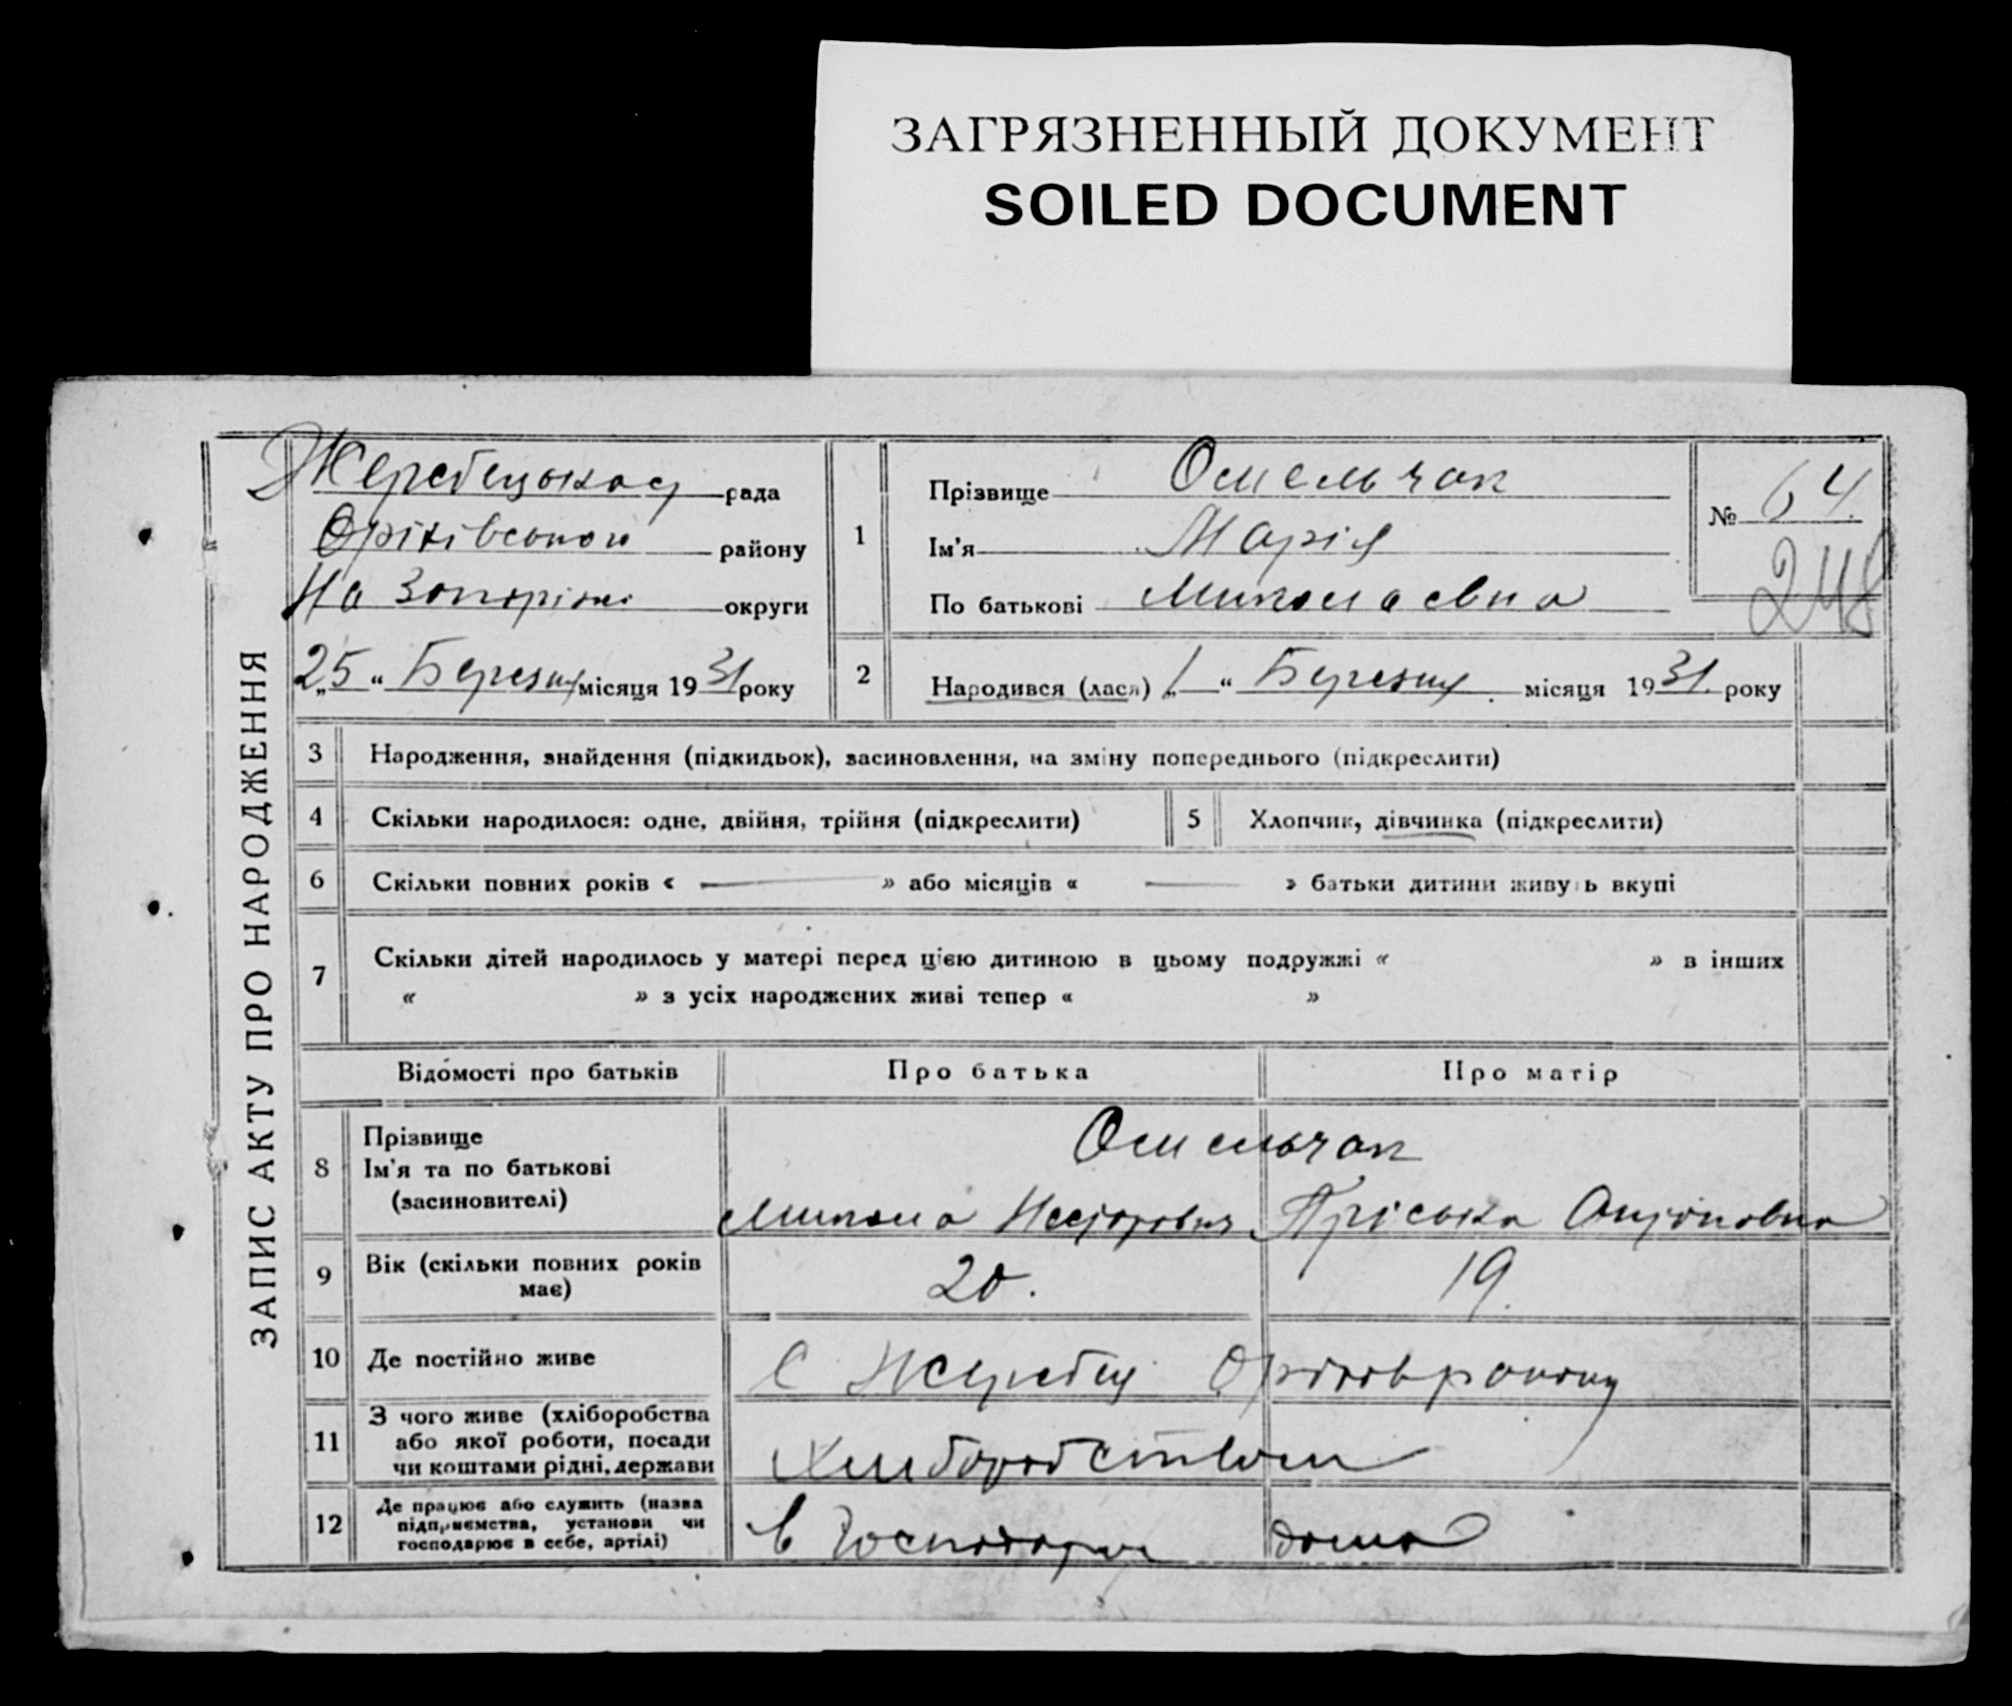 ЗАГРЯЗНЕННЫЙ ДОКУМЕНТ
SOILED DOCUMENT
ЗАПИС АКТУ ПРО НАРОДЖЕННЯ
Жеребецька рада
Оріхівського району
На Запоріжжі округи
„25“ Березня місяця 1931 року
1
Прізвище Омельчак
Ім'я Марія
По батькові Миколаєвна
№ 64.
248
2
Народився (лася) „1“ Березня місяця 1931. року
3 Народження, знайдення (підкидьок), засиновлення, на зміну попереднього (підкреслити)
4 Скільки народилося: одне, двійня, трійня (підкреслити)
5 Хлопчик, дівчинка (підкреслити)
6 Скільки повних років « — » або місяців « — » батьки дитини живуть вкупі
7 Скільки дітей народилось у матері перед цією дитиною в цьому подружжі « » в інших
« » з усіх народжених живі тепер « »
Відомості про батьків Про батька Про матір
8 Прізвище
Ім'я та по батькові
(засиновителі)
Омельчак
Микола Несторович Пріська Антоновна
9 Вік (скільки повних років
має)
20. 19.
10 Де постійно живе
С Жеребец Оріхов району
11 З чого живе (хліборобства
або якої роботи, посади
чи коштами рідні, держави
Хлиборобством
12 Де працює або служить (назва
підприємства, установи чи
господарює в себе, артілі)
в дома